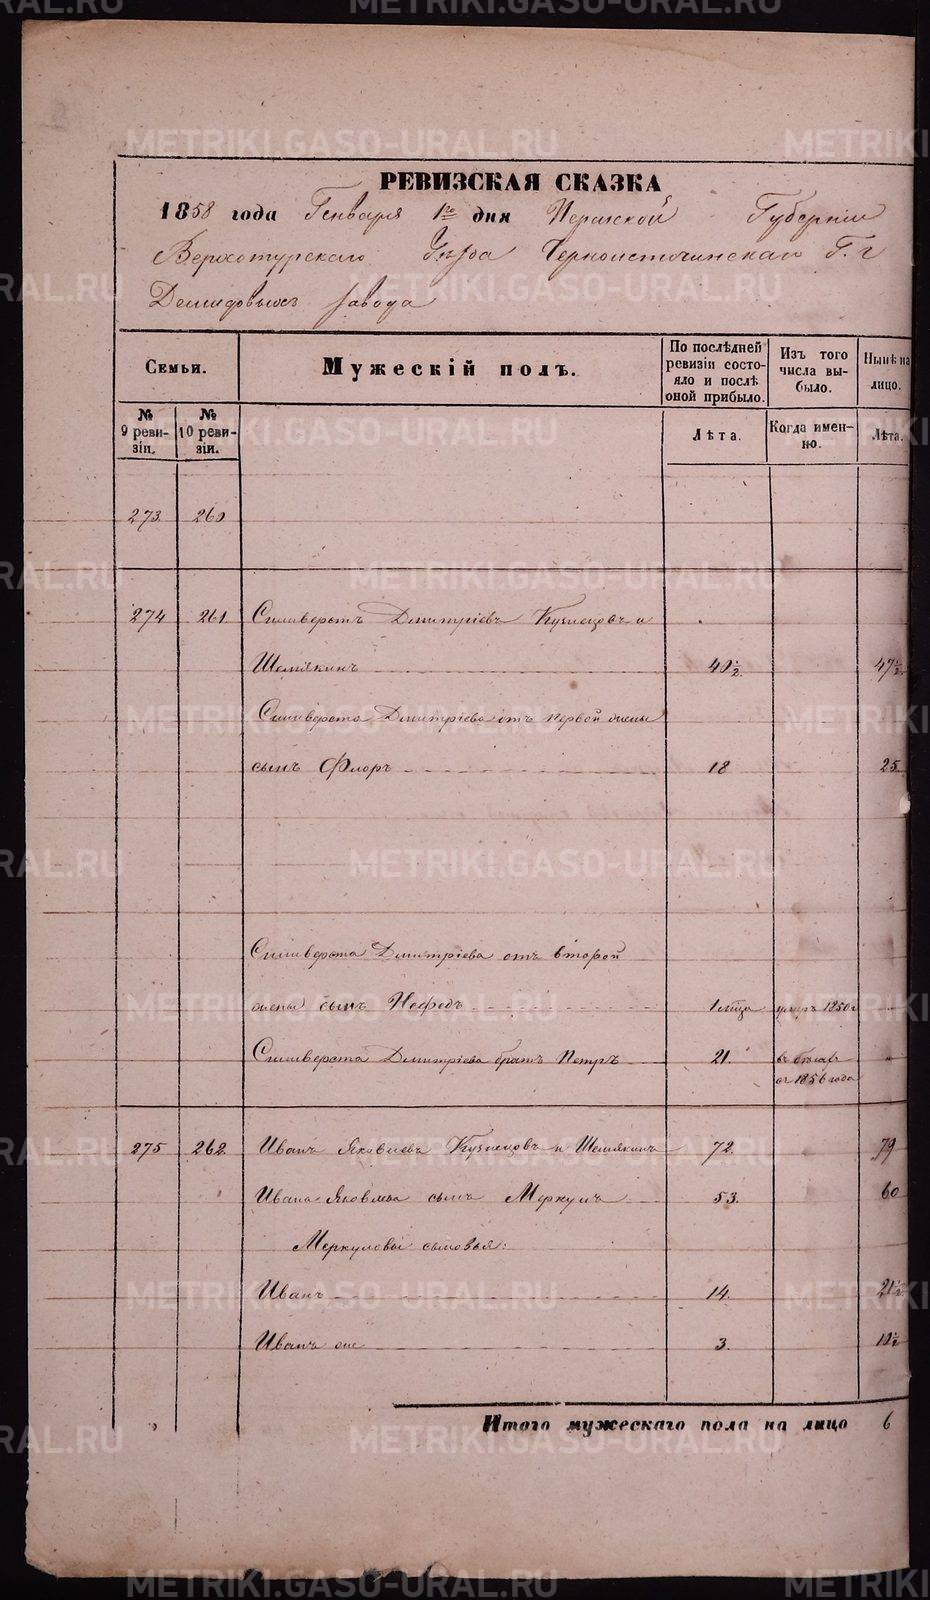 РЕВИЗСКАЯ СКАЗКА
1858 года Генваря 1го дня Пермской Губерніи
Верхотурскаго Уѣзда Черноисточинскаго Г. г
Демидовыхъ завода
Семьи.
Мужескій полъ.
По послѣдней ревизіи состояло и послѣ оной прибыло.
Изъ того числа выбыло.
Нынѣ на лицо.
№ 9 ревизіи.
№ 10 ревизіи.
Лѣта.
Когда именно.
Лѣта.
273. 260
274 261 Силиверстъ Дмитріевъ Кузнецовъ и
Шемякинъ 40½ 47½
Силиверста Дмитріева отъ первой жены
сынъ Флоръ 18 25
Силиверста Дмитріева отъ второй
жены сынъ Нефедъ 1 мѣца умеръ 1850 г
Силиверста Дмитріева братъ Петръ 21. въ бѣгахъ
съ 1856 года
275 262 Иванъ Яковлевъ Кузнецовъ и Шемякинъ 72. 79
Ивана Яковлева сынъ Меркулъ 53. 60
Меркуловы сыновья:
Иванъ 14. 21½
Иванъ же 3. 10½
Итого мужескаго пола на лицо 6
METRIKI.GASO-URAL.RU